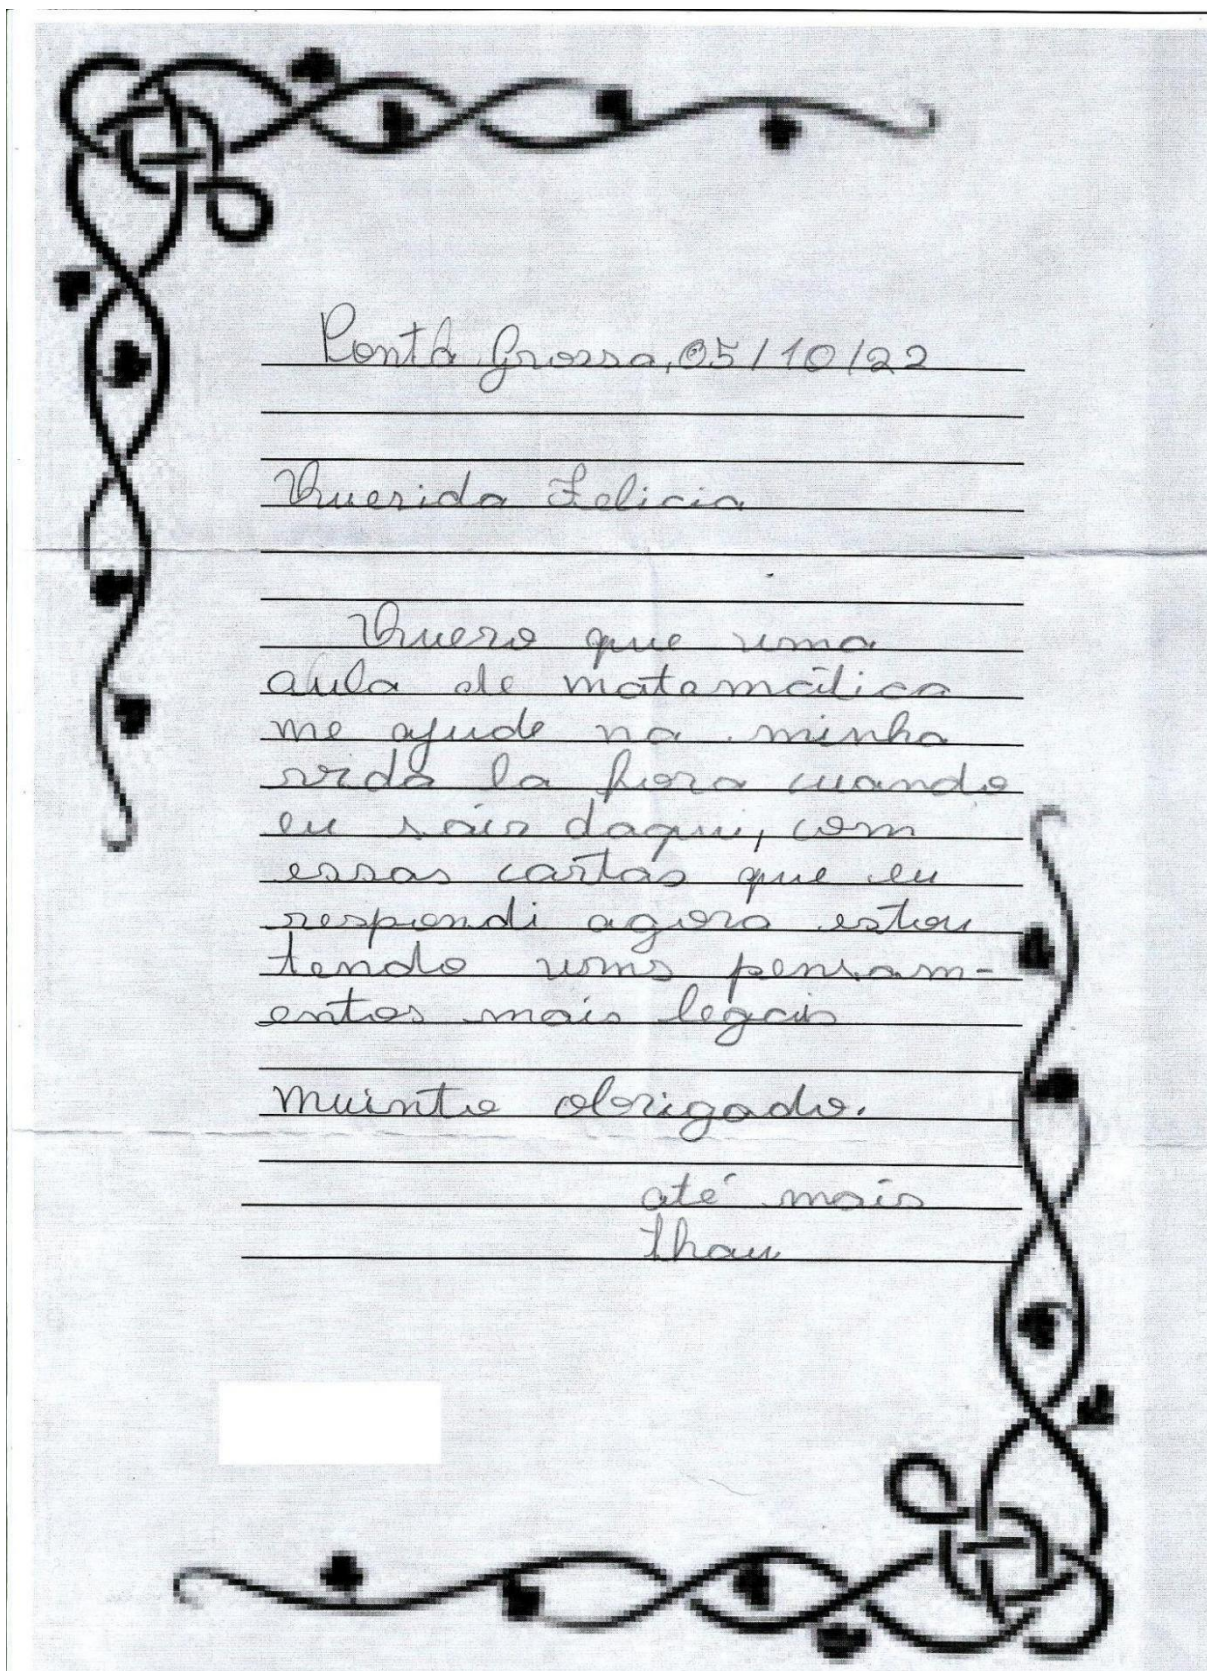 Ponta Grossa, 05/10/22
Querida Felicia
Quero que uma
aula de matemática
me ajude na minha
vida la fora cuando
eu sair daqui, com
essas cartas que eu
respondi agora estou
tendo uns pensam-
entos mais legais
Muinto obrigado.
até mais
thau